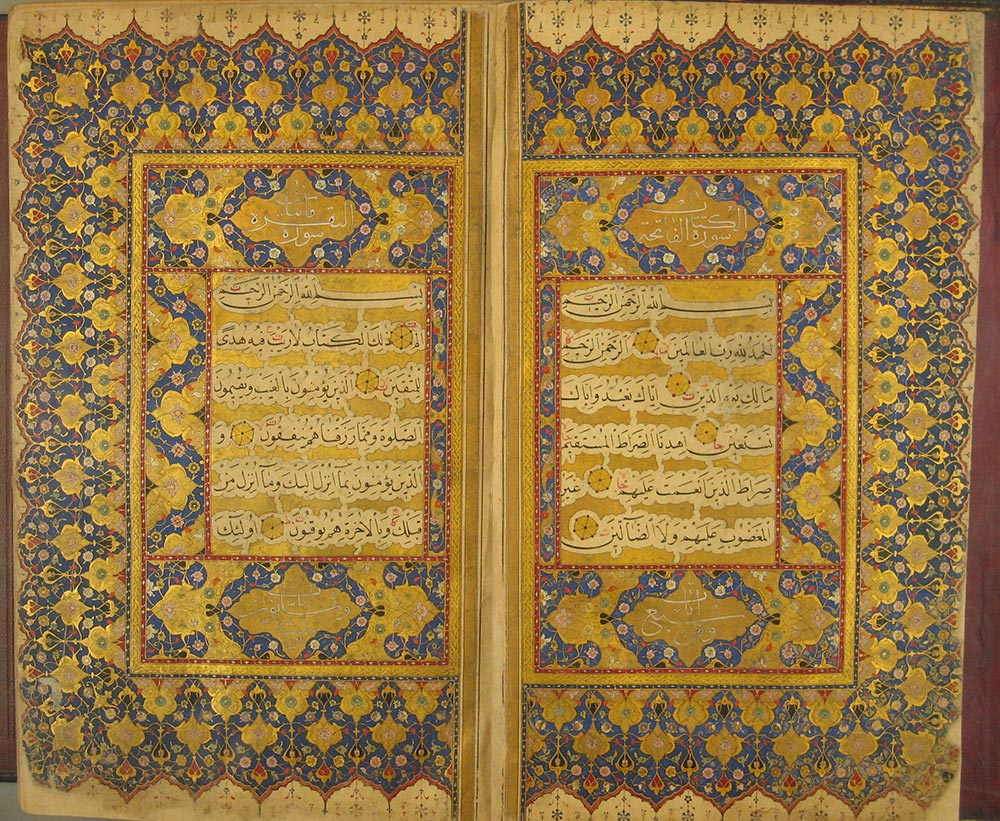 سورة الفاتحة الكتاب
بسم الله الرحمن الرحيم
الحمد لله رب العالمين الرحمن الرحيم
مالك يوم الدين اياك نعبد واياك
نستعين اهدنا الصراط المستقيم
صراط الذين انعمت عليهم غير
المغضوب عليهم ولا الضآلين
وهي سبع آيات
سورة البقرة مائتان
بسم الله الرحمن الرحيم
الم ذلك الكتاب لا ريب فيه هدى
للمتقين الذين يؤمنون بالغيب ويقيمون
الصلوة ومما رزقناهم ينفقون و
الذين يؤمنون بمآ انزل اليك ومآ انزل من
قبلك وبالاخرة هم يوقنون اولئك